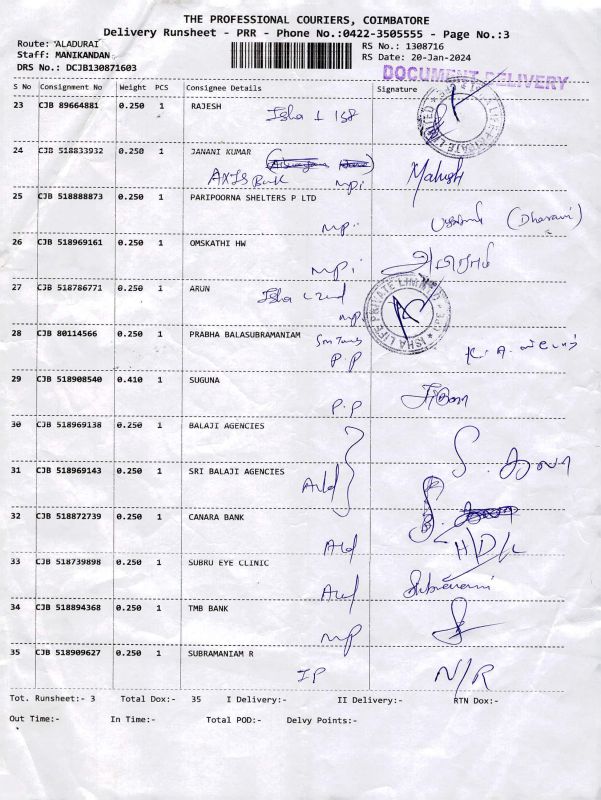 THE PROFESSIONAL COURIERS, COIMBATORE
Delivery Runsheet - PRR - Phone No.:0422-3505555 - Page No.:3
Route: 'ALADURAI
RS No.: 1308716
Staff: MANIKANDAN
RS Date: 20-Jan-2024
DRS No.: DCJB130871603
DOCUMENT DELIVERY
S No Consignment No Weight PCS Consignee Details Signature
23 CJB 89664881 0.250 1 RAJESH
Isha
24 CJB 518833932 0.250 1 JANANI KUMAR
AXIS Bank mpi Mahesh
25 CJB 518888873 0.250 1 PARIPOORNA SHELTERS P LTD
mpi (Dharani)
26 CJB 518969161 0.250 1 OMSKATHI HW
mpi
27 CJB 518786771 0.250 1 ARUN
Isha
mp
ISHA LIFE PRIVATE LIMITED
28 CJB 80114566 0.250 1 PRABHA BALASUBRAMANIAM
P.P
29 CJB 518908540 0.410 1 SUGUNA
P.P
30 CJB 518969138 0.250 1 BALAJI AGENCIES
31 CJB 518969143 0.250 1 SRI BALAJI AGENCIES
Ald
32 CJB 518872739 0.250 1 CANARA BANK
Ald
33 CJB 518739898 0.250 1 SUBRU EYE CLINIC
Ald
34 CJB 518894368 0.250 1 TMB BANK
mp
35 CJB 518909627 0.250 1 SUBRAMANIAM R
IP N/R
Tot. Runsheet:- 3 Total Dox:- 35 I Delivery:- II Delivery:- RTN Dox:-
Out Time:- In Time:- Total POD:- Delvy Points:-